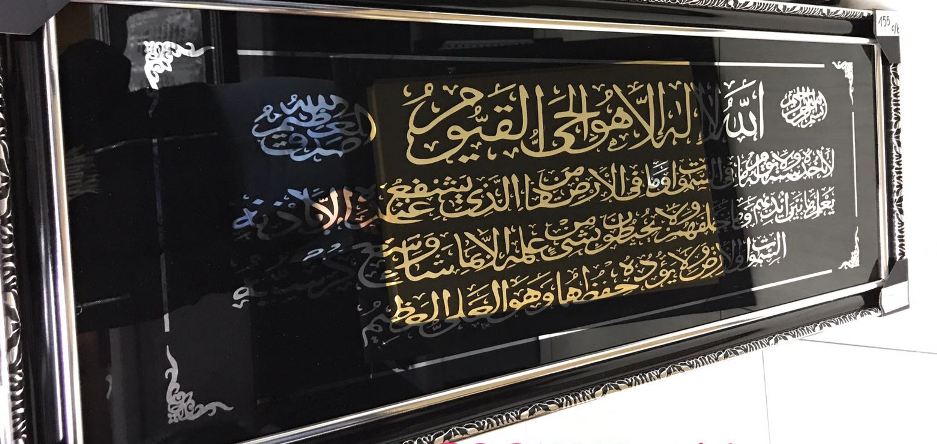 155
بسم الله الرحمن الرحيم
الله لا إله إلا هو الحي القيوم
صدق الله العظيم
لا تأخذه سنة ولا نوم له ما في السموات وما في الأرض من ذا الذي يشفع عنده إلا بإذنه
يعلم ما بين أيديهم وما خلفهم ولا يحيطون بشئ من علمه إلا بما شاء وسع كرسيه
السموات والأرض ولا يؤده حفظهما وهو العلي العظيم